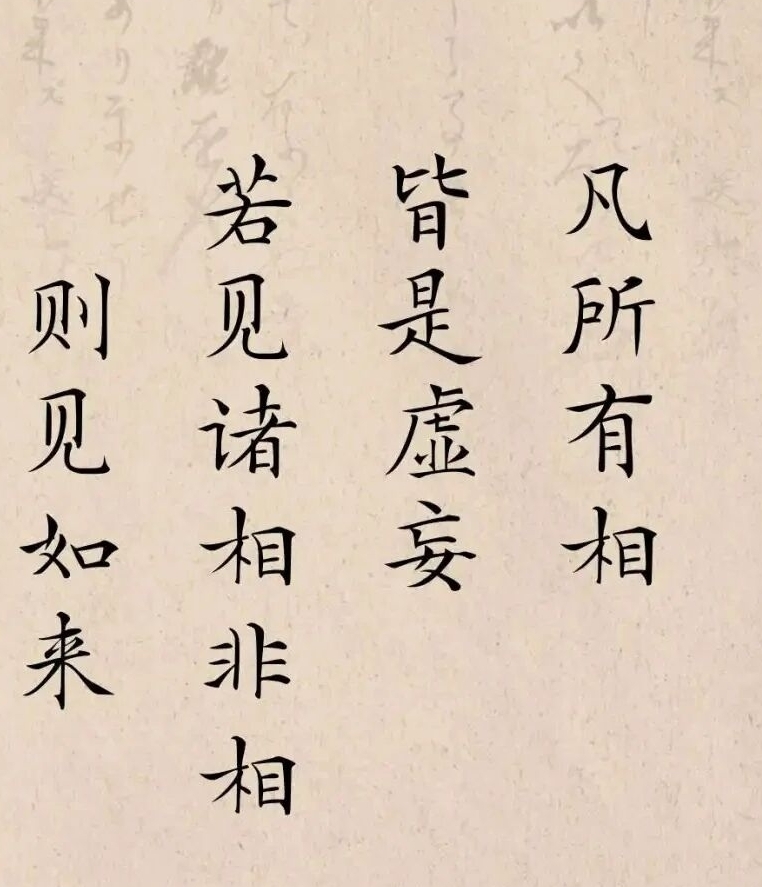 凡所有相
皆是虚妄
若见诸相非相
则见如来